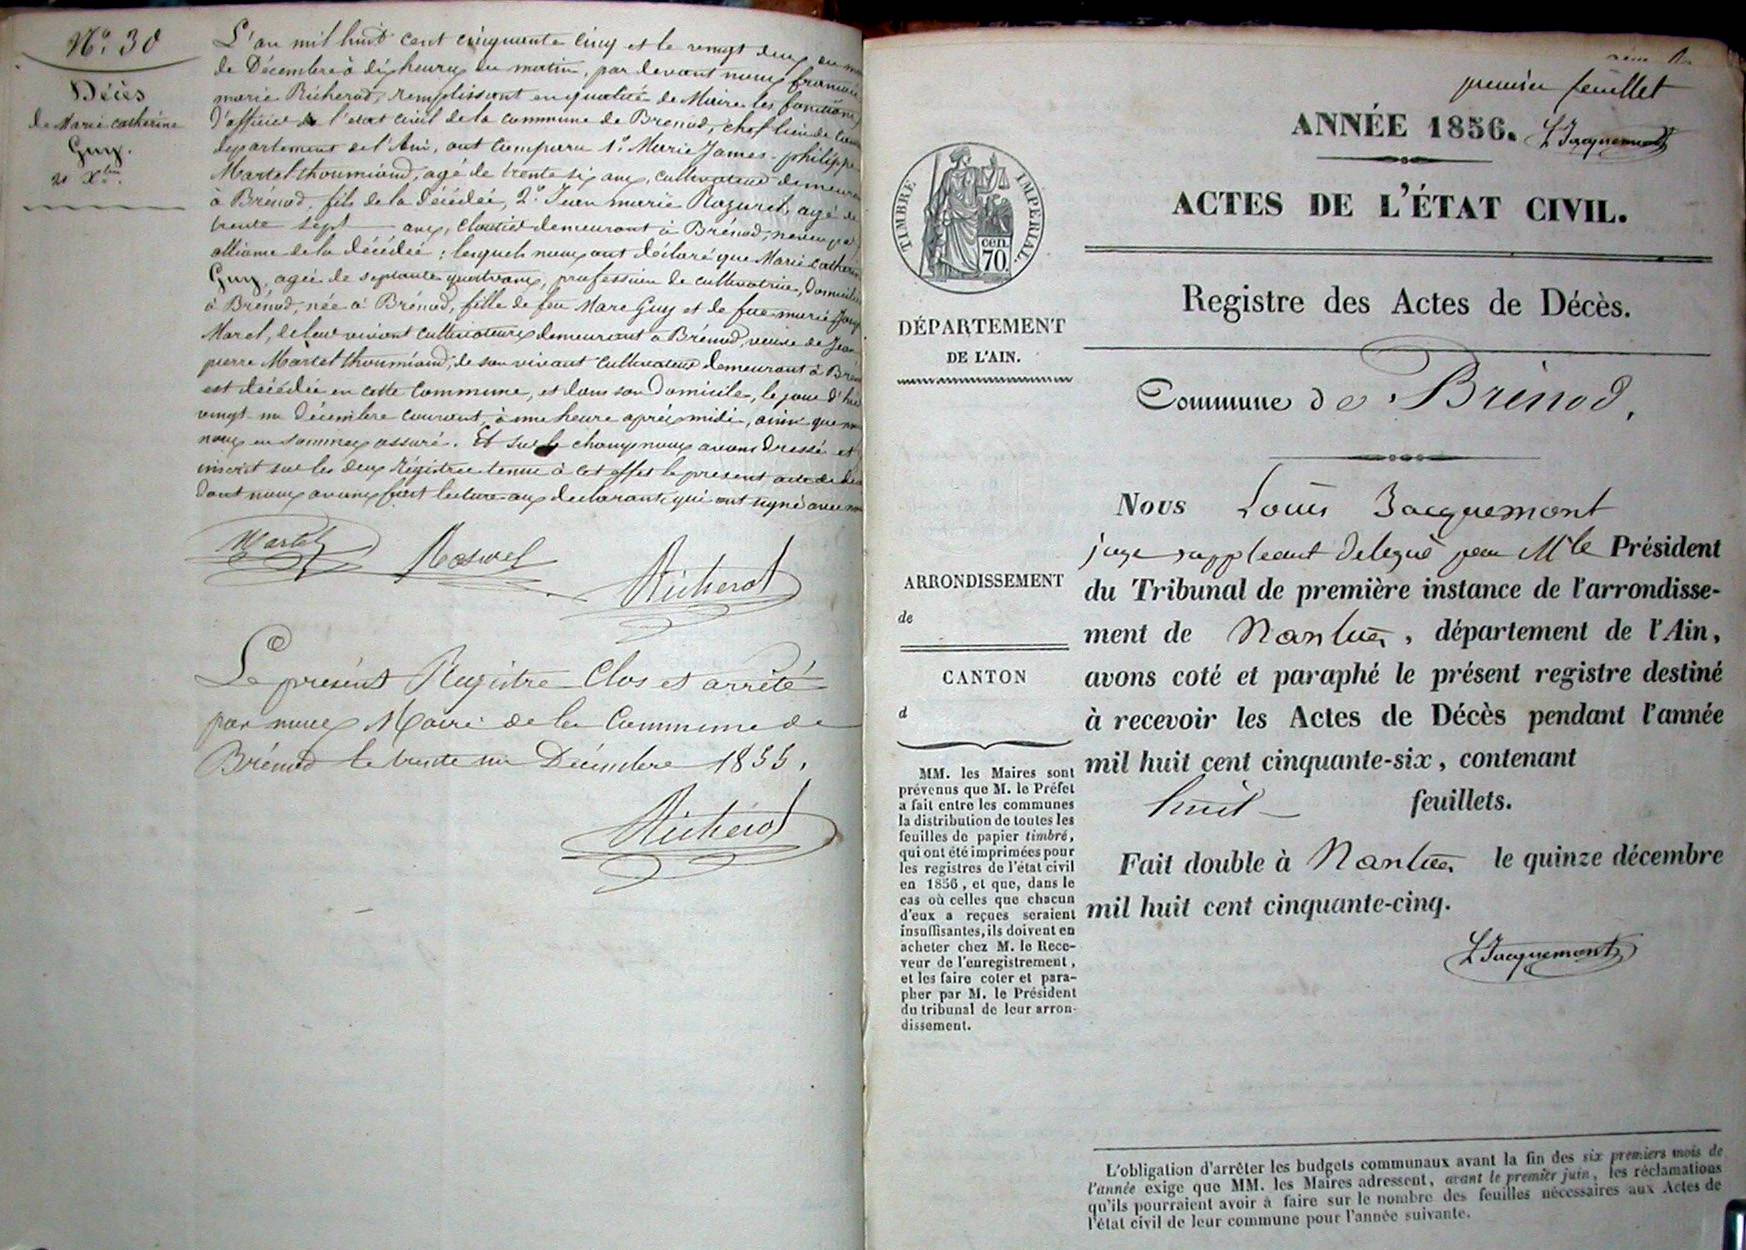 N.o 30
Décès
de Marie Catherine
Guy.
21 X.bre
L'an mil huit cent cinquante cinq et le vingt deux du
de Décembre à dix heures du matin, par devant nous françois
marie Richerod, remplissant en qualité de Maire les fonctions
d'officier de l'etat civil de la commune de Brenod, chef lieu de
departement de l'Ain, ont comparu 1.o Marie James-philippe
Martel thoumiand, agé de trente six ans, cultivateur demeurant
à Brénod, fils de la décédée, 2.o Jean marie agé de
trente sept ans, cloutier demeurant à Brénod, neveu par
alliance de la décédée ; lesquels nous ont déclaré que Marie Catherine
Guy, agée de septante quatre ans, profession de cultivatrice, domiciliée
à Brénod, née à Brénod, fille de feu Marc Guy et de feue marie
Maret, de leur vivant cultivateurs demeurant à Brénod, veuve de Jean
pierre Martel thoumiand, de son vivant cultivateur demeurant à
est décédée en cette commune, et dans son domicile, le jour d'hier
vingt un décembre courant, à une heure après midi, ainsi que
nous en sommes assuré. Et sur le champ nous avons dressé et
inscrit sur les deux régistres tenus à cet effet le présent acte de
dont nous avons fait lecture aux declarants qui ont signé avec
Martel
Richerod
Le présent Registre Clos et arrêté
par nous Maire de la Commune de
Brénod le trente un Décembre 1855.
Richerod
premier feuillet
ANNÉE 1856.
L Jacquemont
ACTES DE L'ÉTAT CIVIL.
TIMBRE IMPERIAL.
cen.
70.
Registre des Actes de Décès.
DÉPARTEMENT
DE L'AIN.
Commune de Brénod.
Nous Louis Jacquemont
juge suppleant délégué par Mr le Président
du Tribunal de première instance de l'arrondisse-
ment de Nantua, département de l'Ain,
avons coté et paraphé le présent registre destiné
à recevoir les Actes de Décès pendant l'année
mil huit cent cinquante-six, contenant
huit feuillets.
Fait double à Nantua, le quinze décembre
mil huit cent cinquante-cinq.
L Jacquemont
ARRONDISSEMENT
de
CANTON
d
MM. les Maires sont
prévenus que M. le Préfet
a fait entre les communes
la distribution de toutes les
feuilles de papier timbré,
qui ont été imprimées pour
les registres de l'état civil
en 1856, et que, dans le
cas où celles que chacun
d'eux a reçues seraient
insuffisantes, ils doivent en
acheter chez M. le Rece-
veur de l'enregistrement,
et les faire coter et para-
pher par M. le Président
du tribunal de leur arron-
dissement.
L'obligation d'arrêter les budgets communaux avant la fin des six premiers mois de
l'année exige que MM. les Maires adressent, avant le premier juin, les réclamations
qu'ils pourraient avoir à faire sur le nombre des feuilles nécessaires aux Actes de
l'état civil de leur commune pour l'année suivante.